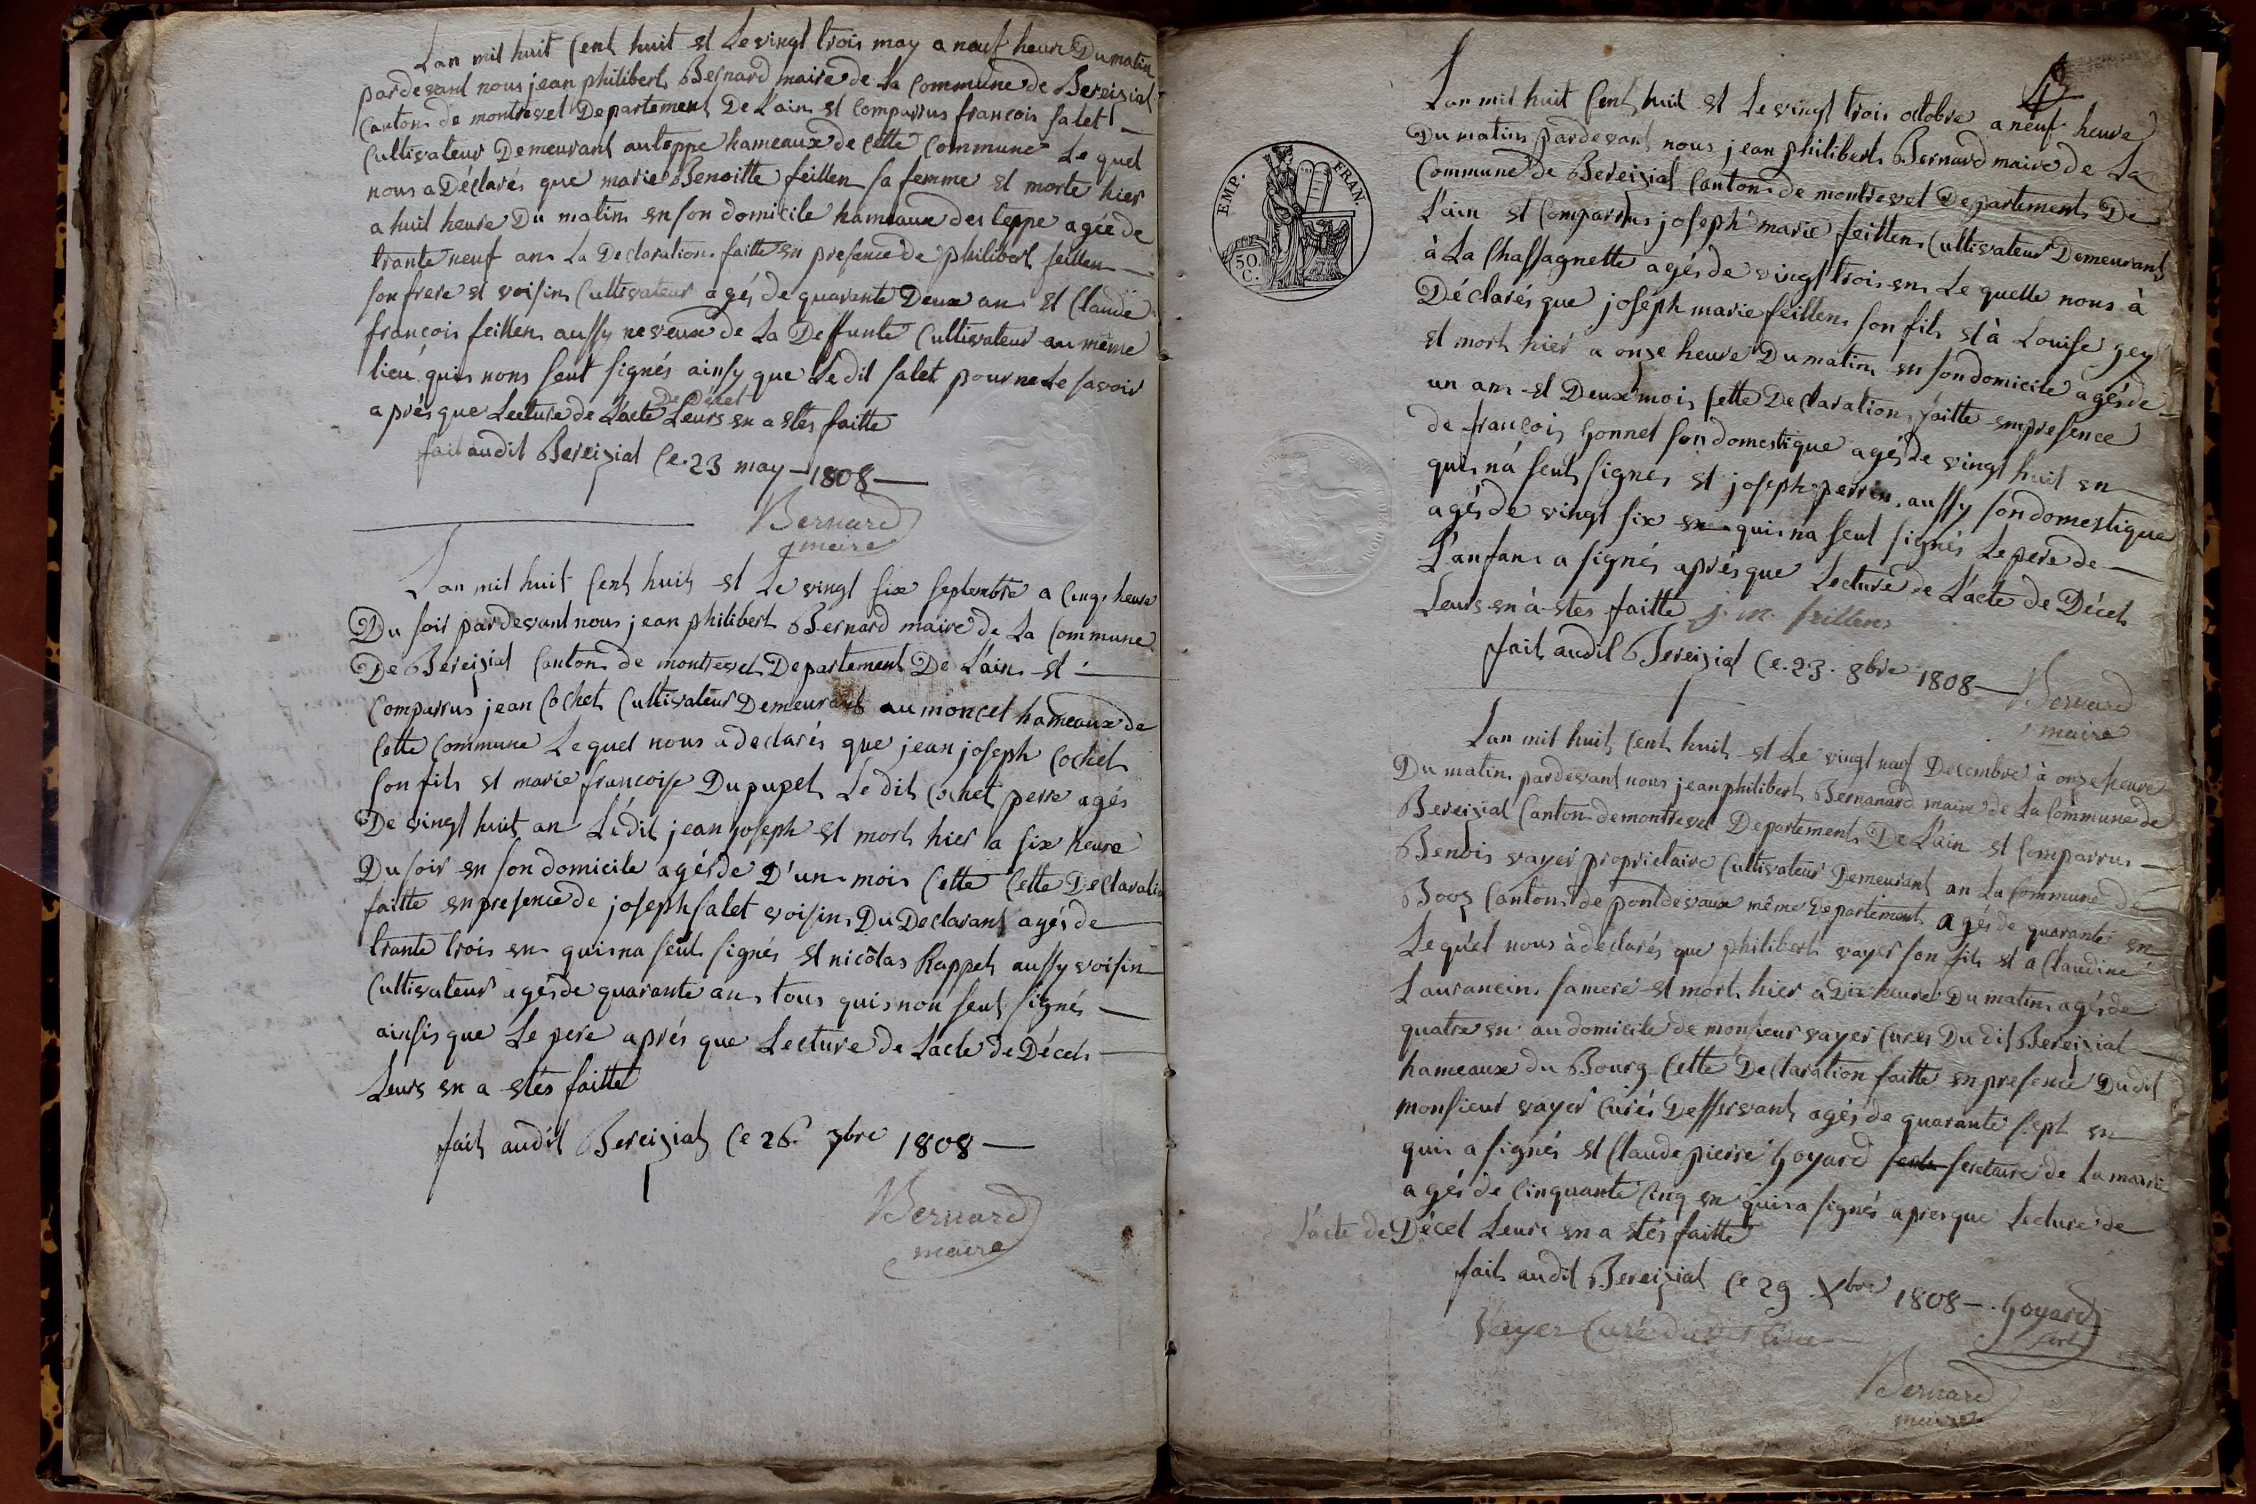 Lan mil huit Cent huit et Le vingt trois may a neuf heure Du matin
pardevant nous jean philibert Bernard maire de la Commune de Bereiziat
Canton de montrevel Departement De L'ain et Comparrus francois salet
Cultivateur Demeurant au teppe hameaux de Cette Commune Le quel
nous a Déclarés que marie Benoitte feillen sa femme et morte hier
a huit heure Du matin en son domicile hameaux des teppe agée de
trante neuf an La Declaration faitte en presence de philibert feillen
son frere et voisin Cultivateur agés de quarente Deux an et Claude
françois feillen aussy neveux de La Deffunte Cultivateur au même
lieu quis nons seut signés ainsy que Le dit salet pour ne Le savoir
aprés que Lecture de L'acte De Décet Leurs en a etés faitte
fait audit Bereiziat Ce 23 may 1808
Bernard
maire
Lan mil huit Cent huit et Le vingt six septembre a Cinq heure
Du soir pardevant nous jean philibert Bernard maire de La Commune
De Bereiziat Canton de montrevel Departement De L'ain et
Comparrus jean Cochet Cultivateur Demeurant au moncel hameaux de
Cette Commune Le quel nous a declarés que jean joseph Cochet
son fils et marie francoise Dupupet Le dit Cochet perre agés
De vingt huit an Lédit jean joseph et mort hier a six heure
Du soir en son domicile agés de D'un mois Cette Cette Declaration
faitte en presence de joseph salet voisin Du Declarant agés de
trante trois en quis na seut signés et nicolas Rappet aussy voisin
Cultivateur agés de quarante an tous quis non seut signés
ainsis que Le pere aprés que Lecture de Lacte de Décet
Leurs en a etés faitte
fait audit Bereiziat Ce 26 7bre 1808
Bernard
maire
EMP. FRAN.
50. C.
Lan mil huit Cent huit et Le vingt trois octobre a neuf heure
Du matin pardevant nous jean philibert Bernard maire de La
Commune de Bereiziat Canton de montrevel Departement De
L'ain et Comparrus joseph marie feillen Cultivateur Demeurant
à La Chassagnette agés de vingt trois en Le quelle nous à
Déclarés que joseph marie feillen son fils et à Louise gey
et mort hier a onze heure Du matin en son domicile agés de
un an et Deux mois Cette Declaration faitte en presence
de françois gonnet son domestique agés de vingt huit en
quis ná seut signés et joseph perrin aussy son domestique
agés de vingt six en quis na seut signés Le pere de
L'anfan a signés aprés que Lecture de L'acte de Décet
Leurs en à etes faitte j. m. feillen
fait audit Bereiziat Ce 23. 8bre 1808
Bernard
maire
Lan mil huit Cent huit et Le vingt neuf Decembre à onze heure
Du matin pardevant nous jean philibert Bernanard maire de La Commune de
Bereiziat Canton de montrevel Departement De L'ain et Comparrus
Benois vayer proprietaire Cultivateur Demeurant an La Commune de
Booz Canton de pont devaux même Departement agés de quarante en
Le quel nous à declarés que philibert vayer son fils et a Claudine
Laurancin sa mere et mort hier a Dix heure Du matin agés de
quatre en au domicile de monsieur vayer Cures Du dit Bereiziat
hameaux du Bourg Cette Declaration faitte en presence Dudit
monsieur vayer Curés Desservant agés de quarante sept en
quis a signés et Claude pierre goyard secretaire de La mairie
agés de Cinquante Cinq en quis a signés apres que Lecture de
L'acte de Décet Leurs en a etés faitte
fait audit Bereiziat Ce 29 Xbre 1808 goyard
Vayer Curé
Bernard
maire